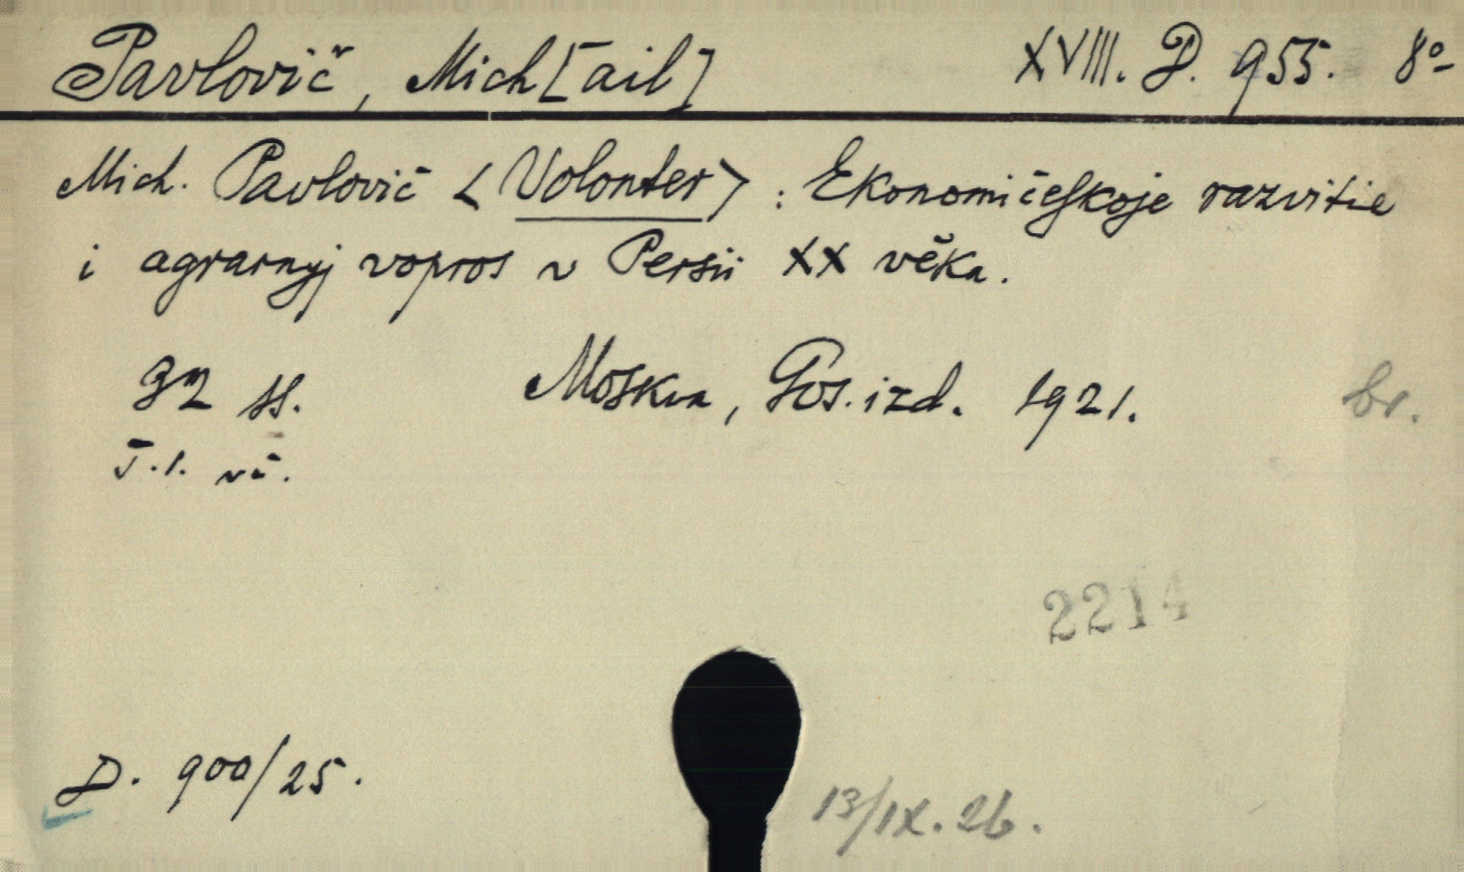 Pavlovič, Mich[ail] XVIII. D. 955. 8°
Mich. Pavlovič <Volonter>: Ekonomičeskoje razvitie
i agrarnyj vopros v Persii XX věka.
32 ss. Moskva, Gos. izd. 1921. br.
T. l. vč.
2214
D. 900/25.
13/IX. 26.